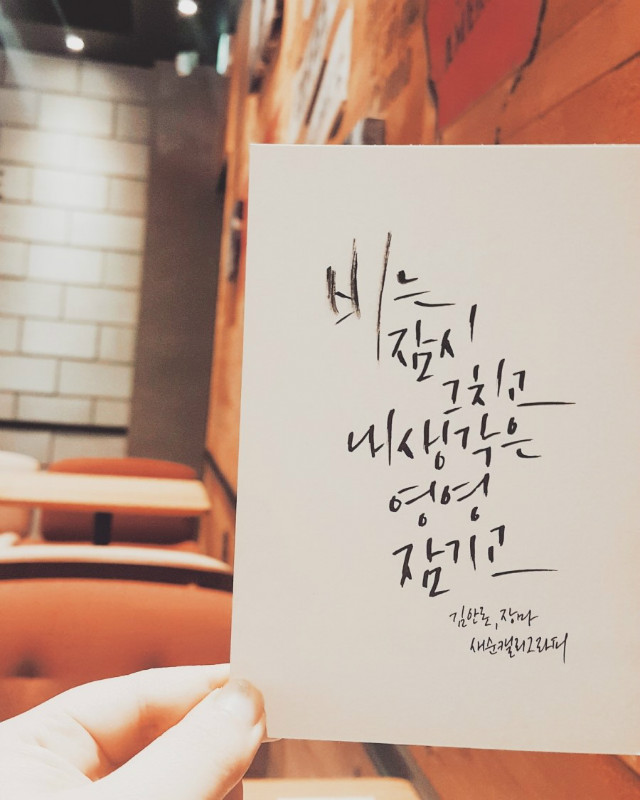 AMER
비는
잠시
그치고
내 생각은
영영
잠기고
김안론, 장마
새순캘리그라피